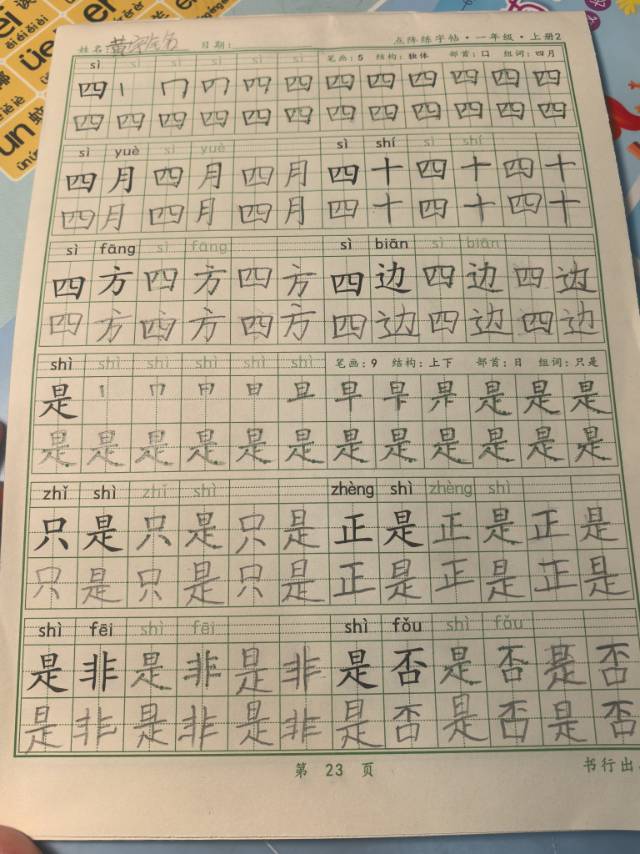 姓名 日期： 点阵练字帖·一年级·上册2
sì 笔画：5 结构：独体 部首：口 组词：四月
四 丨 冂 四 四 四 四 四 四 四 四
四 四 四 四 四 四 四 四 四 四 四 四
sì yuè sì yuè sì shí sì shí
四 月 四 月 四 月 四 十 四 十 四 十
四 月 四 月 四 月 四 十 四 十 四 十
sì fāng sì fāng sì biān sì biān
四 方 四 方 四 方 四 边 四 边 四 边
四 方 四 方 四 方 四 边 四 边 四 边
shì shì shì shì shì shì 笔画：9 结构：上下 部首：日 组词：只是
是 丨 冂 日 日 旦 早 是 是 是
是 是 是 是 是 是 是 是 是 是 是 是
zhǐ shì zhǐ shì zhèng shì zhèng shì
只 是 只 是 只 是 正 是 正 是 正 是
只 是 只 是 只 是 正 是 正 是 正 是
shì fēi shì fēi shì fǒu shì fǒu
是 非 是 非 是 非 是 否 是 否 是 否
是 非 是 非 是 非 是 否 是 否 是 否
第 23 页 书行出